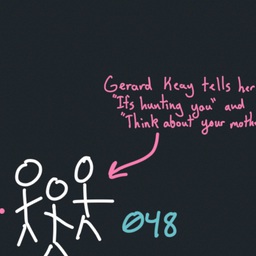 Gerard Keay tells her
"It's hunting you" and
"Think about your moth
048